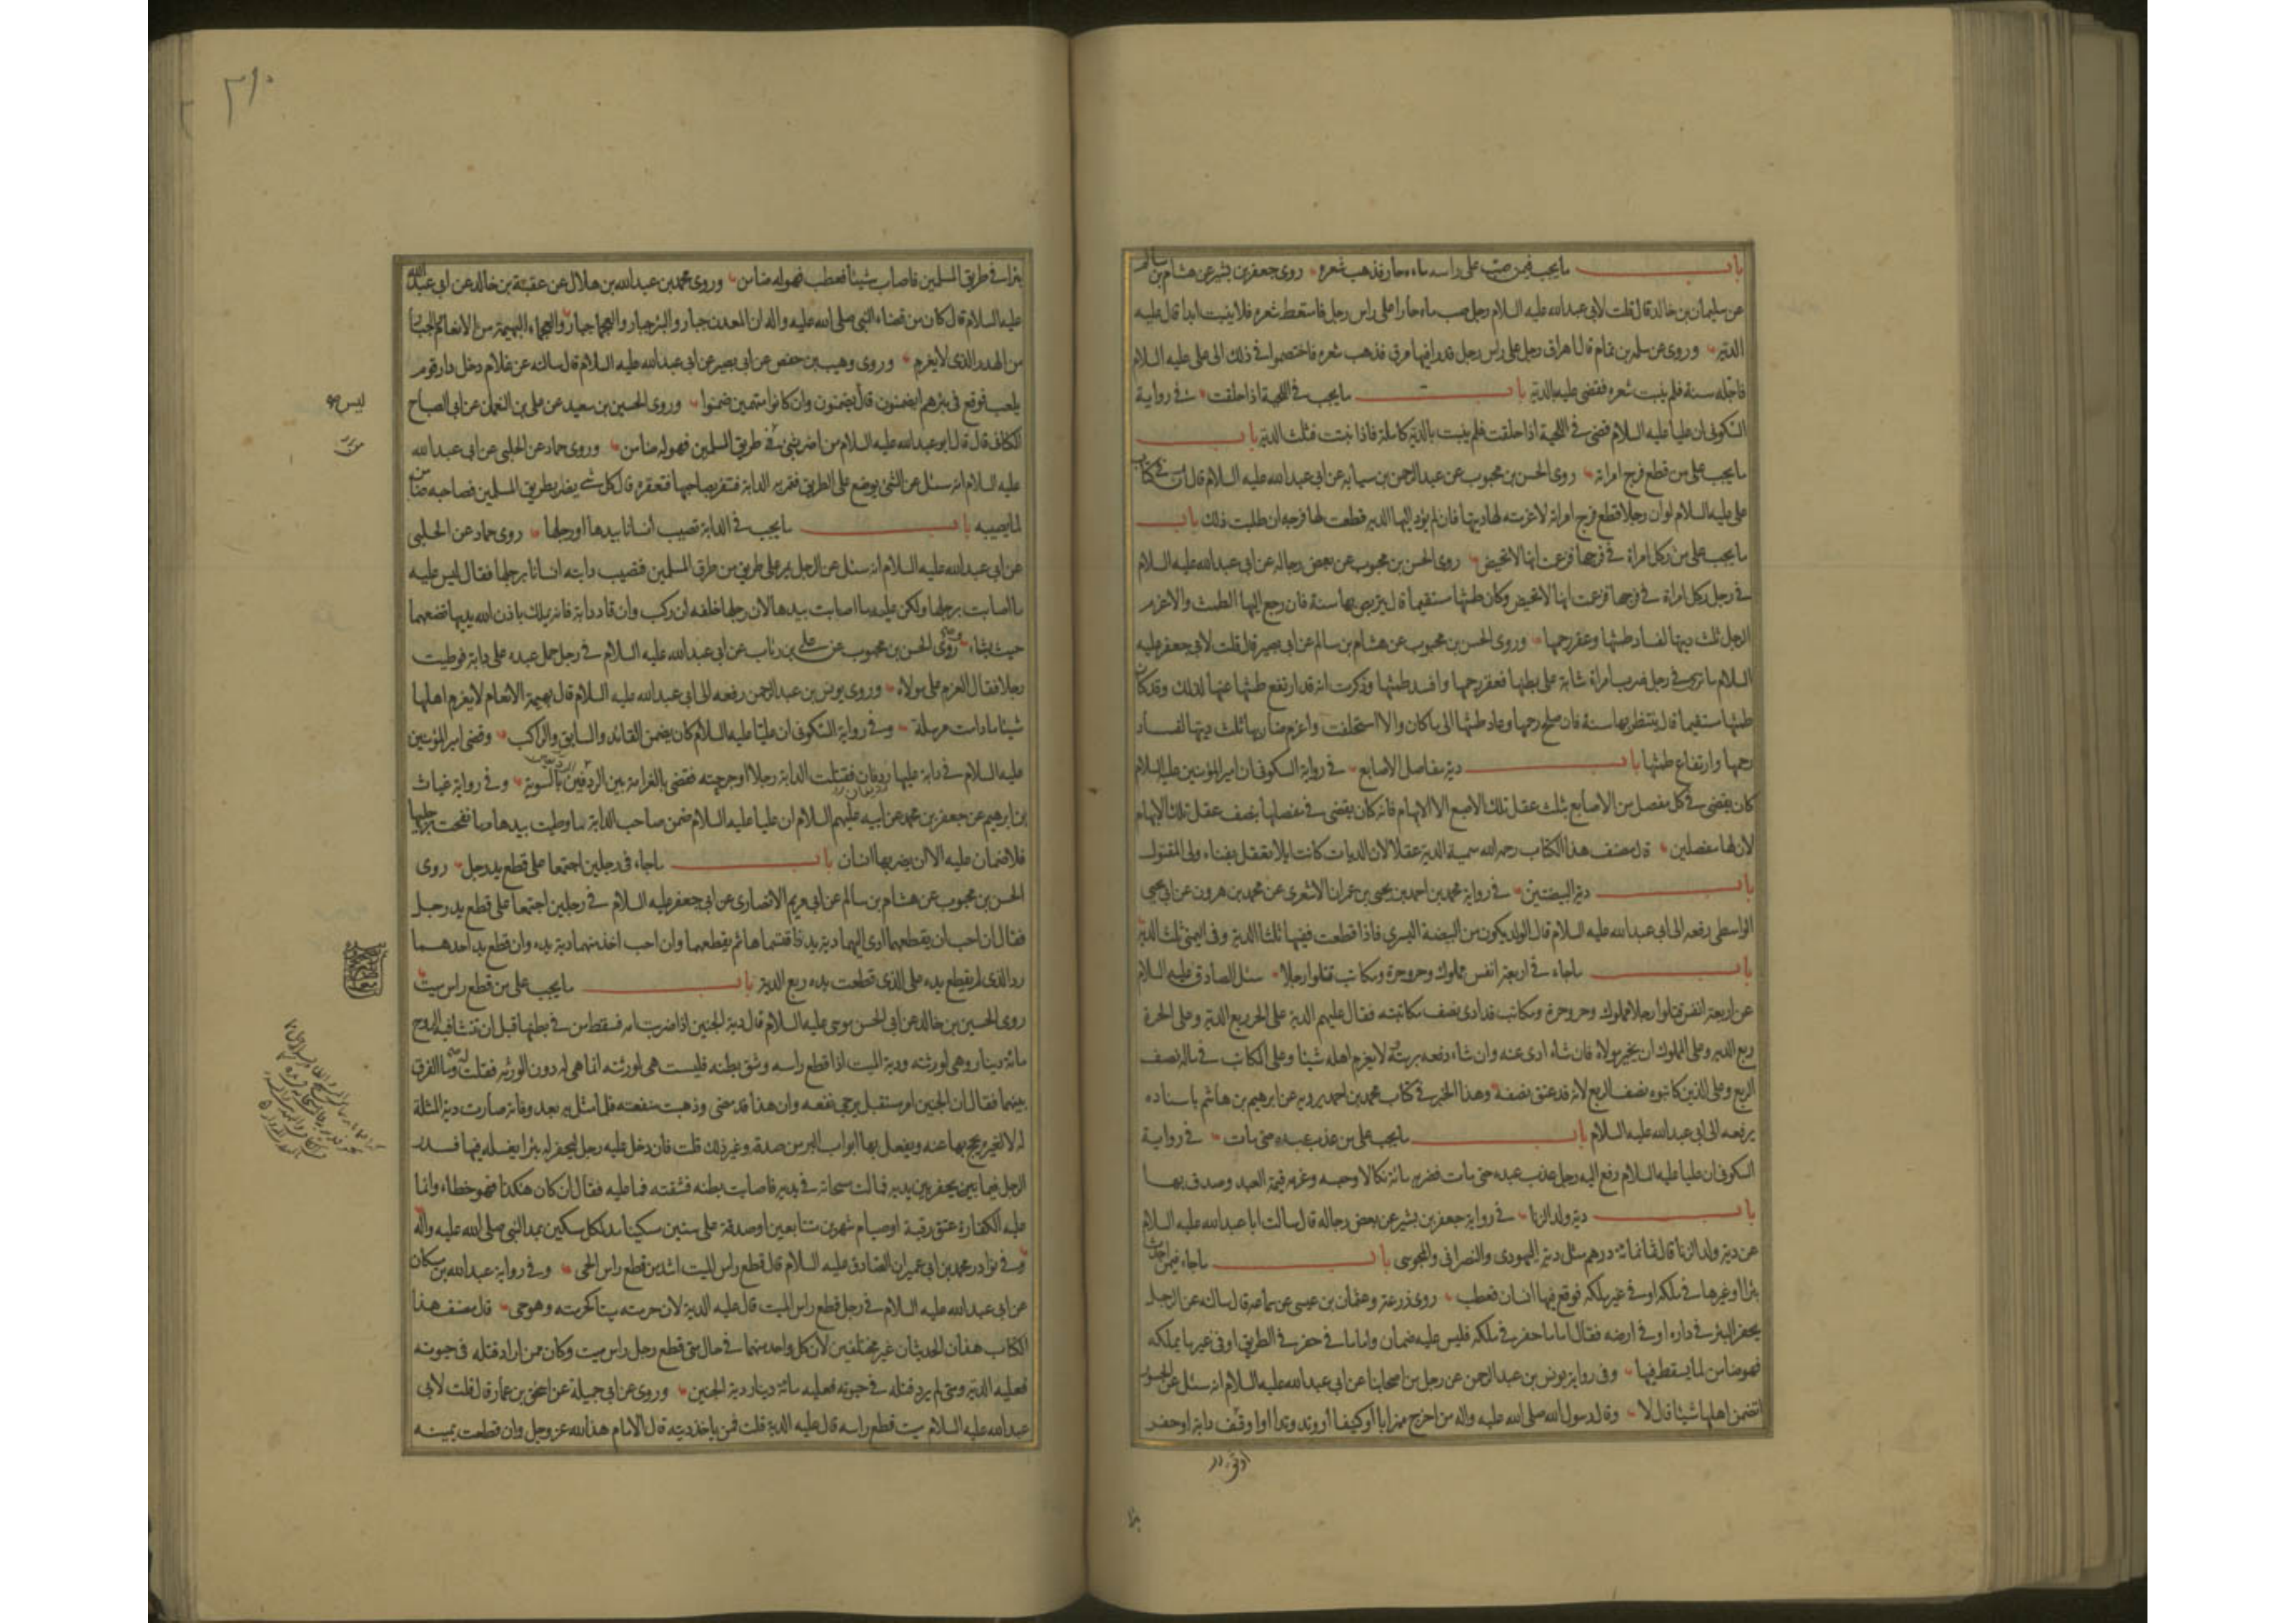 باب ما يجب فيمن صب على راسه ماء حار فذهب شعره روى جعفر بن بشير عن هشام بن سالم
عن سليمان بن خالد قال قلت لابى عبدالله عليه السلام رجل صب ماء حارا على راس رجل فامتعط شعره فلا ينبت ابدا قال عليه
الدية وروى عن سلمة بن تمام قال اهراق رجل على راس رجل قدرا فيها مرق فذهب شعره فاختصموا في ذلك الى على عليه السلام
فاجله سنة فلم ينبت شعره فقضى عليه بالدية باب ما يجب في اللحية اذا حلقت في رواية
السكونى ان عليا عليه السلام قضى في اللحية اذا حلقت فلم ينبت بالدية كاملة فاذا نبتت فثلث الدية باب
ما يجب على من قطع فرج امراته روى الحسن بن محبوب عن عبد الرحمن بن سيابة عن ابى عبدالله عليه السلام قال ان في كتاب
على عليه السلام لو ان رجلا قطع فرج امراته لاغرمته لها ديتها فان لم يؤد اليها الدية قطعت لها فرجه ان طلبت ذلك باب
ما يجب على من ركل امراة في فرجها فزعمت انها لا تحيض روى الحسن بن محبوب عن بعض رجاله عن ابى عبدالله عليه السلام
في رجل ركل امراة في فرجها فزعمت انها لا تحيض وكان طمثها مستقيما قال يتربص بها سنة فان رجع اليها الطمث والا غرم
الرجل ثلث ديتها لفساد طمثها وعقر رحمها وروى الحسن بن محبوب عن هشام بن سالم عن ابى بصير قال قلت لابى جعفر عليه
السلام ما ترى في رجل ضرب امراة شابة على بطنها فعقر رحمها وافسد طمثها وذكرت انه قد ارتفع طمثها عنها لذلك وقد كان
طمثها مستقيما قال ينتظر بها سنة فان صلح رحمها وعاد طمثها الى ما كان والا استحلفت واغرم ضاربها ثلث ديتها لفساد
رحمها وارتفاع طمثها باب دية مفاصل الاصابع في رواية السكونى ان امير المؤمنين عليه السلام
كان يقضى في كل مفصل من الاصابع بثلث عقل تلك الاصبع الا الابهام فانه كان يقضى في مفصلها بنصف عقل تلك الابهام
لان لها مفصلين قال مصنف هذا الكتاب رحمه الله سميت الدية عقلا لان الديات كانت ابلا تعقل بفناء ولى المقتول
باب دية البيضتين في رواية محمد بن احمد بن يحيى بن عمران الاشعرى عن محمد بن هرون عن ابى يحيى
الواسطى رفعه الى ابى عبدالله عليه السلام قال الولد يكون من البيضة اليسرى فاذا قطعت ففيها ثلثا الدية وفى اليمنى ثلث الدية
باب ما جاء في اربعة انفس مملوك وحر وحرة ومكاتب قتلوا رجلا سئل الصادق عليه السلام
عن اربعة انفس قتلوا رجلا مملوك وحر وحرة ومكاتب قد ادى نصف مكاتبته فقال عليهم الدية على الحر ربع الدية وعلى الحرة
ربع الدية وعلى المملوك ان يخير مولاه فان شاء ادى عنه وان شاء دفعه برمته لا يغرم اهله شيئا وعلى المكاتب في ماله نصف
الربع وعلى الذين كاتبوه نصف الربع لانه قد عتق نصفه وهذا الخبر في كتاب محمد بن احمد يرويه عن ابرهيم بن هاشم باسناده
يرفعه الى ابى عبدالله عليه السلام باب ما يجب على من عذب عبده حتى مات في رواية
السكونى ان عليا عليه السلام رفع اليه رجل عذب عبده حتى مات فضربه مائة نكالا وحبسه وغرمه قيمة العبد وصدق بها
باب دية ولد الزنا في رواية جعفر بن بشير عن بعض رجاله قال سالت ابا عبدالله عليه السلام
عن دية ولد الزنا قال ثمانمائة درهم مثل دية اليهودى والنصرانى والمجوسى باب ما جاء فيمن احدث
بئرا او غيرها في ملكه او في غير ملكه فوقع فيها انسان فعطب روى زرعة وعثمان بن عيسى عن سماعة قال سالته عن الرجل
يحفر البئر في داره او في ارضه فقال اما ما حفر في ملكه فليس عليه ضمان واما ما في حفر في الطريق او فى غير ما يملكه
فهو ضامن لما يسقط فيها وفى رواية يونس بن عبد الرحمن عن رجل من اصحابنا عن ابى عبدالله عليه السلام انه سئل عن الجسور
اتضمن اهلها شيئا قال لا وقال رسول الله صلى الله عليه واله من اخرج ميزابا او كنيفا او وتد وتدا او اوقف دابة او حفر
بئرا
٣١٠
بئرا في طريق المسلمين فاصاب شيئا فعطب فهو له ضامن وروى محمد بن عبدالله بن هلال عن عقبة بن خالد عن ابى عبد الله
عليه السلام قال كان من قضاء النبى صلى الله عليه واله ان المعدن جبار والبئر جبار والعجماء جبار والعجماء البهيمة من الانعام والجبار
من الهدر الذى لا يغرم وروى وهيب بن حفص عن ابى بصير عن ابى عبدالله عليه السلام قال سالته عن غلام دخل دار قوم
يلعب فوقع في بئرهم ايضمنون قال ليس يضمنون وان كانوا متهمين ضمنوا وروى الحسين بن سعيد عن على بن النعمان عن ابى الصباح
الكنانى قال قال ابو عبدالله عليه السلام من اضر بشئ في طريق المسلمين فهو له ضامن وروى حماد عن الحلبى عن ابى عبدالله
عليه السلام انه سئل عن الشئ يوضع على الطريق فتمر به الدابة فتنفر بصاحبها فتعقره قال كل شئ يضر بطريق المسلمين فصاحبه ضامن
لما يصيبه باب ما يجب في الدابة تصيب انسانا بيدها او رجلها روى حماد عن الحلبى
عن ابى عبدالله عليه السلام انه سئل عن الرجل يمر على طريق من طرق المسلمين فتصيب دابته انسانا برجلها فقال ليس عليه
ما اصابت برجلها ولكن عليه ما اصابت بيدها لان رجلها خلفه ان ركب وان قاد دابة فانه يملك باذن الله يديها يضعهما
حيث يشاء وروى الحسن بن محبوب عن على بن رئاب عن ابى عبدالله عليه السلام في رجل حمل عبده على دابة فوطيت
رجلا فقال الغرم على مولاه وروى يونس بن عبد الرحمن رفعه الى ابى عبدالله عليه السلام قال بهيمة الانعام لا يغرم اهلها
شيئا ما دامت مرسلة وفي رواية السكونى ان عليا عليه السلام كان يضمن القائد والسايق والراكب وقضى امير المؤمنين
عليه السلام في دابة عليها ردفان فقتلت الدابة رجلا او جرحته فقضى بالغرامة بين الردفين بالسوية وفى رواية غياث
بن ابرهيم عن جعفر بن محمد عن ابيه عليهم السلام ان عليا عليه السلام ضمن صاحب الدابة ما وطيت بيدها وما نفحت برجلها
فلا ضمان عليه الا ان يضربها انسان باب ما جاء فى رجلين اجتمعا على قطع يد رجل روى
الحسن بن محبوب عن هشام بن سالم عن ابى مريم الانصارى عن ابى جعفر عليه السلام في رجلين اجتمعا على قطع يد رجل
فقال ان احب ان يقطعهما ادى اليهما دية يد فاقتسماها ثم يقطعهما وان احب اخذ منهما دية يد وان قطع يد احدهما
رد الذى لم يقطع يده على الذى قطعت يده ربع الدية باب ما يجب على من قطع راس ميت
روى الحسين بن خالد عن ابى الحسن موسى عليه السلام قال دية الجنين اذا ضربت امه فسقط من في بطنها قبل ان تنشا فيه الروح
مائة دينار وهى لورثته ودية الميت اذا قطع راسه وشق بطنه فليست هى لورثته انما هى له دون الورثه فقلت وما الفرق
بينهما فقال ان الجنين امر مستقبل يرجى نفعه وان هذا قد مضى وذهبت منفعته فلما مثل به بعد وفاته صارت دية المثلة
له لا لغيره يحج بها عنه ويفعل بها ابواب البر من صدقة وغير ذلك قلت فان دخل عليه رجل ليحفر له بئرا يغسله فيها فسدر
الرجل فيما بين يحفر بين يديه فمالت مسحاته في يديه فاصابت بطنه فشقته فما عليه فقال ان كان هكذا فهو خطاء وانما
عليه الكفارة عتق رقبة او صيام شهرين متتابعين او صدقة على ستين مسكينا مد لكل مسكين بمد النبى صلى الله عليه واله
وفى نوادر محمد بن ابى عمير ان الصادق عليه السلام قال قطع راس الميت اشد من قطع راس الحى وفى رواية عبدالله بن مسكان
عن ابى عبدالله عليه السلام في رجل قطع راس الميت قال عليه الدية لان حرمته ميتا كحرمته وهو حى قال مصنف هذا
الكتاب هذان الحديثان غير مختلفين لان كل واحد منهما في حال متى قطع رجل راس ميت وكان ممن اراد قتله فى حيوته
فعليه الدية ومتى لم يرد قتله في حيوته فعليه مائة دينار دية الجنين وروى عن ابى جميلة عن اسحق بن عمار قال قلت لابى
عبدالله عليه السلام ميت قطع راسه قال عليه الدية قلت فمن ياخذ ديته قال الامام هذا لله عز وجل وان قطعت يمينه
ليس